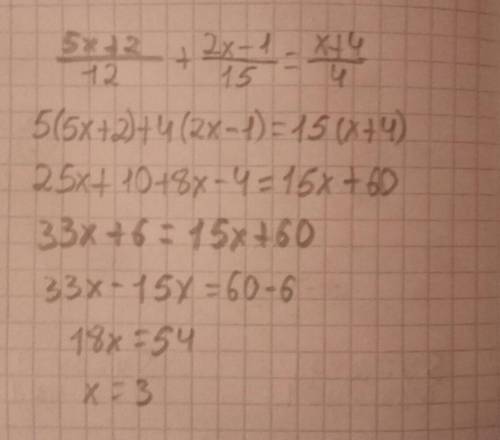 5x+2/12 + 2x-1/15 = x+4/4
5(5x+2)+4(2x-1)=15(x+4)
25x+10+8x-4=15x+60
33x+6=15x+60
33x-15x=60-6
18x=54
x=3